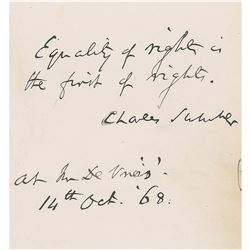 Equality of rights is
the first of rights.
Charles Sumner
at Mr De Vries'.
14th Oct. '68.